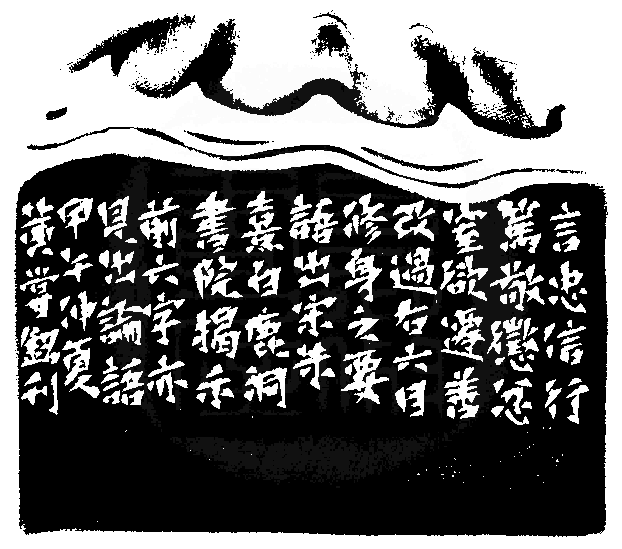 言忠信行
篤敬懲忿
窒欲遷善
改過右六目
修身之要
語出宋朱
熹白鹿洞
書院揭示
前六字亦
見出論語
甲午仲夏
黃嘗銘刊